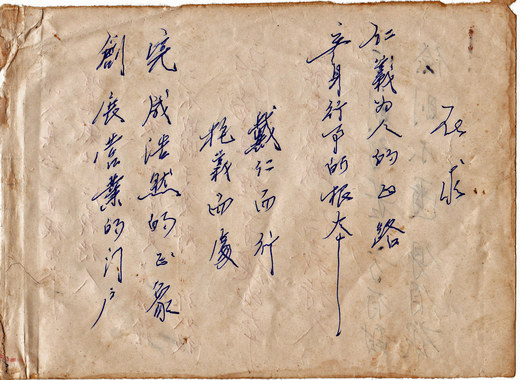 仁義为人的正路
立身行事的根本
戴仁而行
抱義而處
完成浩然的正氣
創展营業的门户